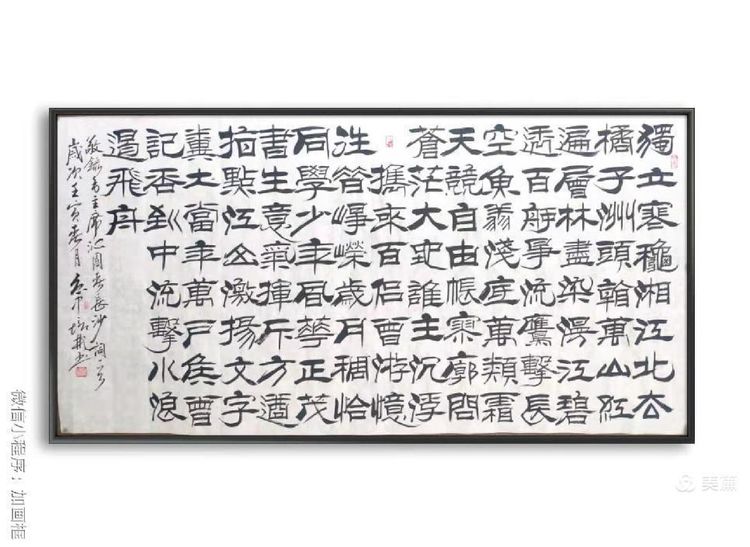 獨立寒穐湘江北去
橘子洲頭看萬山紅
遍層林盡染漫江碧
透百舸爭流鷹擊長
空魚翔淺底萬類霜
天競自由悵寥廓問
蒼茫大地誰主沉浮
攜來百侶曾游憶
往昔崢嶸歲月稠恰
同學少年風華正茂
書生意氣揮斥方遒
指點江山激揚文字
糞土當年萬戶侯曾
記否到中流擊水浪
遏飛舟
敬錄毛主席沁園春長沙詞一首
歲次壬寅春月
微信小程序：加画框
美篇